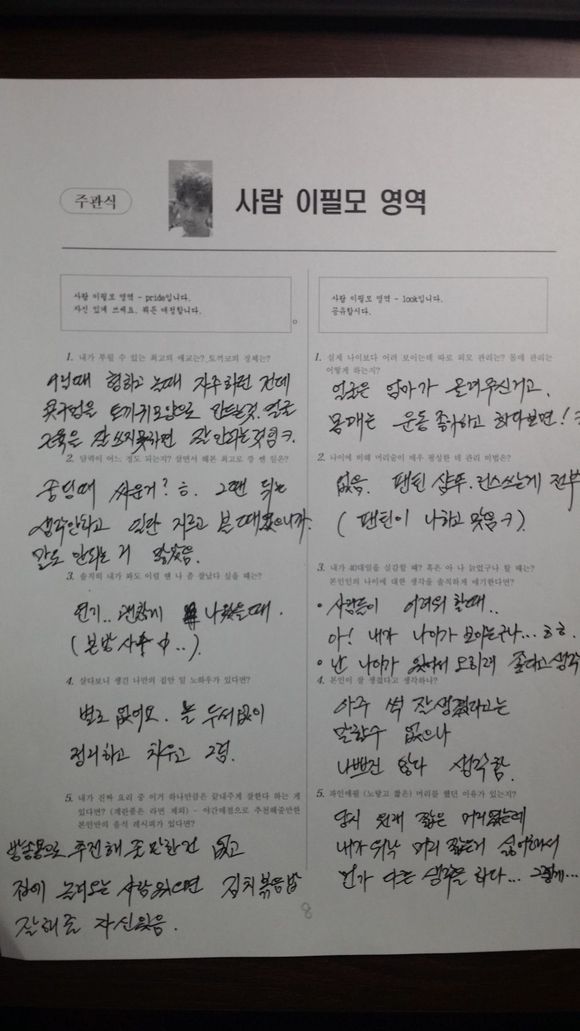 주관식
사람 이필모 영역
사람 이필모 영역 - pride입니다.
자신 있게 쓰세요. 뭐든 애정합니다.
1. 내가 부릴 수 있는 최고의 애교는? 토끼코의 정체는?
형하고 놀때 자주하던 건데
토끼귀모양으로 만드는것. 얼굴
근육을 잘 쓰지못하면 잘 안되는것임ㅋ.
2. 담력이 어느 정도 되는지? 살면서 해본 최고로 깡 센 일은?
중딩때 싸운거? ㅎ. 그땐 뒤는
생각안하고 일단 지르고 볼 때였으니까.
말도 안되는 거 많았음.
3. 솔직히 내가 봐도 이럴 땐 나 좀 잘났다 싶을 때는?
연기.. 괜찮게 나왔을때.
(본방사수 中..).
4. 살다보니 생긴 나만의 집안 일 노하우가 있다면?
별로 없어요. 늘 두서없이
정리하고 치우고 그럼.
5. 내가 진짜 요리 중 이거 하나만큼은 끝내주게 잘한다 하는 게
있다면? (계란좋은 라면 제외) - 야간매점으로 추천해줄만한
본인만의 음식 레시피가 있다면?
방송용으로 추천해 줄만한건 없고
집에 놀러오는 사람있으면 김치볶음밥
잘해줄 자신있음.
사람 이필모 영역 - look입니다.
공유합시다.
1. 실제 나이보다 어려 보이는데 따로 피모 관리는? 몸매 관리는
어떻게 하는지?
얼굴은 엄마가 물려주신거고.
몸매는 운동 좋아하고 하다보면!
2. 나이에 비해 머리숱이 매우 풍성한 데 관리 비법은?
없음. 팬틴 샴푸. 린스쓰는게 전부
(팬틴이 나하고 맞음ㅋ).
3. 내가 40대임을 실감할 때? 혹은 아 나 늙었구나 할 때는?
본인인의 나이에 대한 생각을 솔직하게 얘기한다면?
• 사람들이 어려워 할때..
아! 내가 나이가 보이는구나... ㅎㅎ.
• 난 나이가 있어서 오히려 좋다고 생각
4. 본인이 잘 생겼다고 생각하나?
아주 썩 잘생겼다고는
말할수 없으나
나쁘진 않다 생각함.
5. 파인애플 (노랗고 짧은) 머리를 했던 이유가 있는지?
당시 원래 짧은 머리였는데
내가 워낙 머리 짧은거 싫어해서
뭔가 다른 생각을 하다... 그렇게...
8